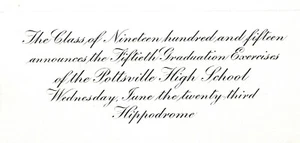 The Class of Nineteen hundred and fifteen
announces the Fiftieth Graduation Exercises
of the Pottsville High School
Wednesday, June the twenty third
Hippodrome